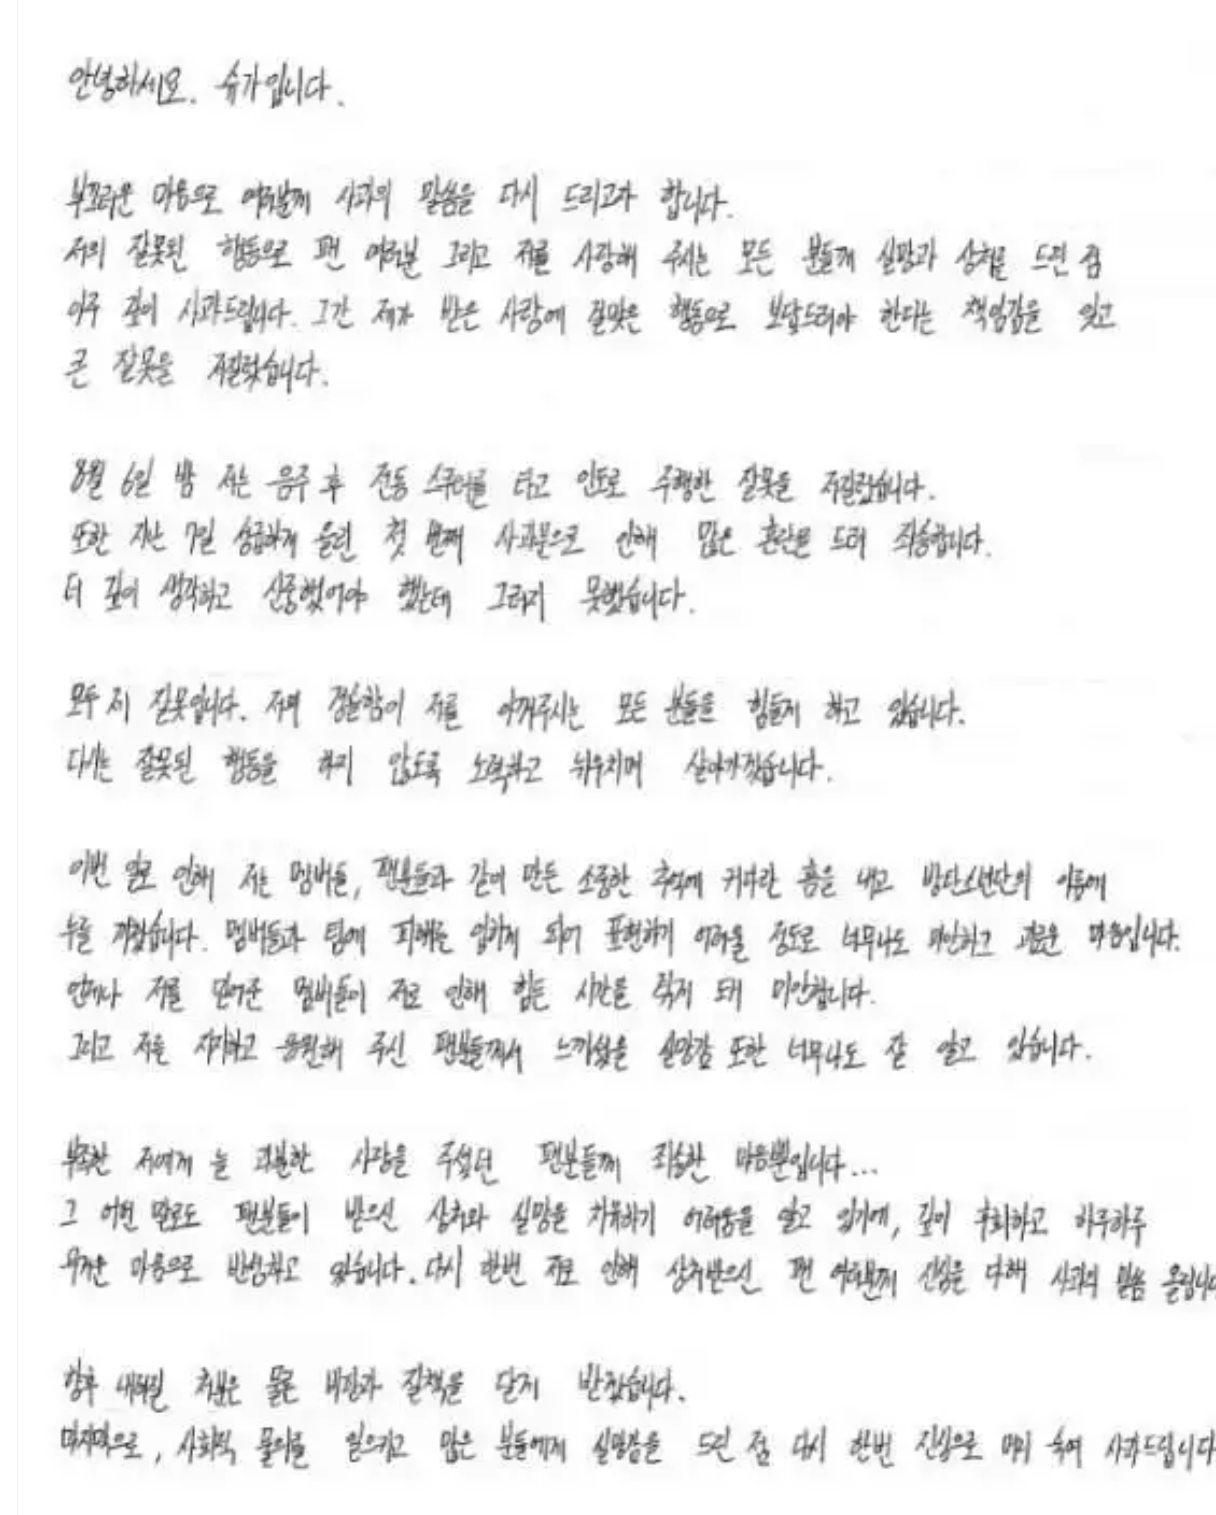 안녕하세요. 슈가입니다.
부끄러운 마음으로 여러분께 사과의 말씀을 다시 드리고자 합니다.
저의 잘못된 행동으로 팬 여러분 그리고 저를 사랑해 주시는 모든 분들께 실망과 상처를 드린 점
아주 깊이 사과드립니다. 그간 제가 받은 사랑에 걸맞은 행동으로 보답드려야 한다는 책임감을 잊고
큰 잘못을 저질렀습니다.
8월 6일 밤 저는 음주 후 전동 스쿠터를 타고 인도로 주행한 잘못을 저질렀습니다.
또한 지난 7일 성급하게 올린 첫 번째 사과문으로 인해 많은 혼란을 드려 죄송합니다.
더 깊이 생각하고 신중했었어야 했는데 그러지 못했습니다.
모두 제 잘못입니다. 저의 경솔함이 저를 아껴주시는 모든 분들을 힘들게 하고 있습니다.
다시는 잘못된 행동을 하지 않도록 노력하고 뉘우치며 살아가겠습니다.
이번 일로 인해 저는 멤버들, 팬분들과 같이 만든 소중한 추억에 커다란 흠을 내고 방탄소년단의 이름에
누를 끼쳤습니다. 멤버들과 팀에 피해를 입히게 되어 표현하기 어려울 정도로 너무나도 미안하고 괴로운 마음입니다.
언제나 저를 믿어준 멤버들이 저로 인해 힘든 시간을 겪게 돼 미안합니다.
그리고 저를 지지하고 응원해 주신 팬분들께서 느끼셨을 실망감 또한 너무나도 잘 알고 있습니다.
부족한 저에게 늘 과분한 사랑을 주셨던 팬분들께 죄송한 마음뿐입니다...
그 어떤 말로도 팬분들이 받으신 상처와 실망을 치유하기 어려움을 알고 있기에, 깊이 후회하고 하루하루
무거운 마음으로 반성하고 있습니다. 다시 한번 저로 인해 상처받으신 팬 여러분께 진심을 다해 사과의 말씀 올립니다
향후 내려질 처분은 물론 비판과 질책을 달게 받겠습니다.
마지막으로, 사회적 물의를 일으키고 많은 분들에게 실망감을 드린 점 다시 한번 진심으로 머리 숙여 사과드립니다